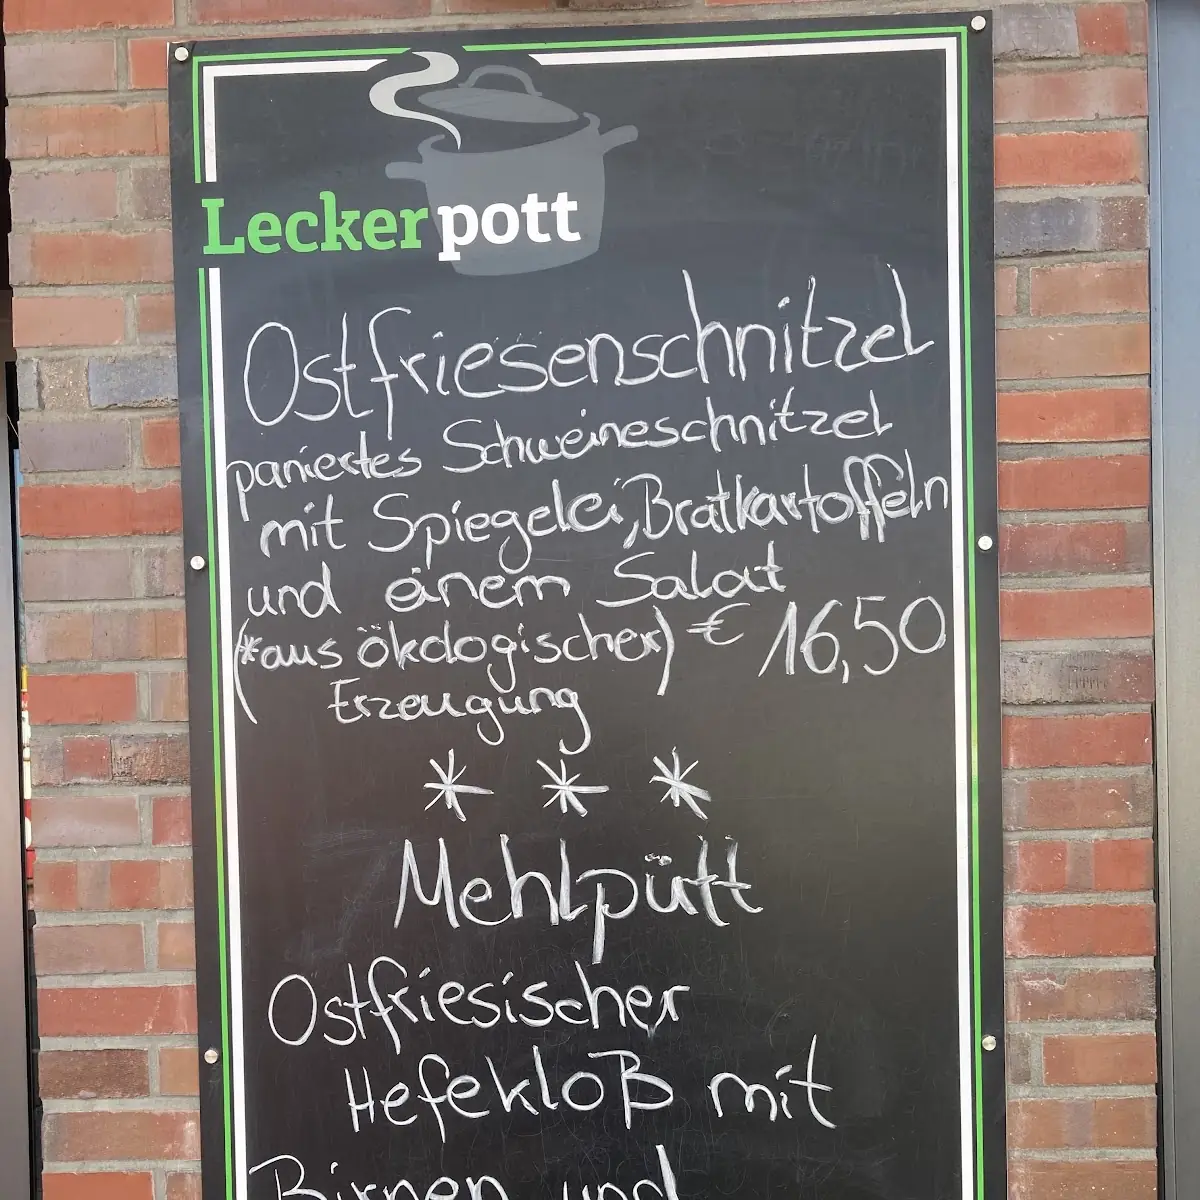 Leckerpott
Ostfriesenschnitzel
paniertes Schweineschnitzel
mit Spiegelei, Bratkartoffeln
und einem Salat
(*aus ökologischer) € 16,50
Erzeugung
* * *
Mehlpütt
Ostfriesischer
Hefekloß mit
Birnen und